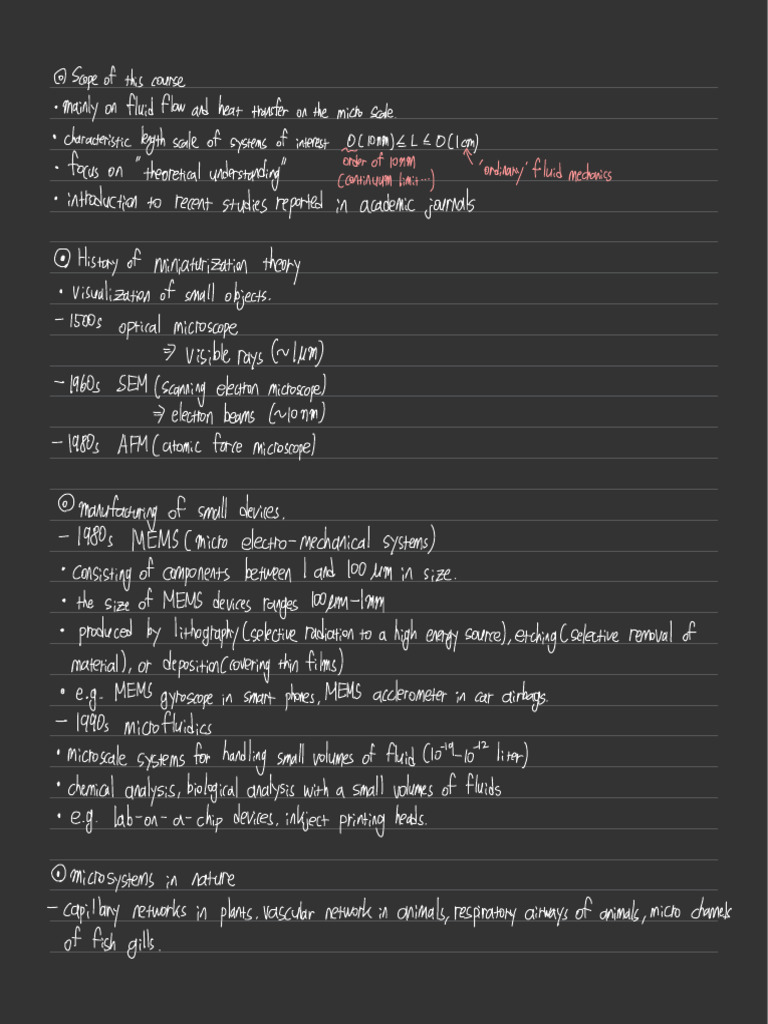 ⊙ Scope of this course
· mainly on fluid flow and heat transfer on the micro scale.
· characteristic length scale of systems of interest O(10nm) ≤ L ≤ O(1cm)
order of 10nm
(continuum limit…)
'ordinary' fluid mechanics
· focus on "theoretical understanding"
· introduction to recent studies reported in academic journals
⊙ History of miniaturization theory
· visualization of small objects.
- 1500s optical microscope
⇒ visible rays (~1μm)
- 1960s SEM (scanning electron microscope)
⇒ electron beams (~10nm)
- 1980s AFM (atomic force microscope)
⊙ manufacturing of small devices.
- 1980s MEMS (micro electro-mechanical systems)
· consisting of components between 1 and 100 μm in size.
· the size of MEMS devices ranges 100μm-1mm
· produced by lithography (selective radiation to a high energy source), etching (selective removal of
material), or deposition (covering thin films)
· e.g. MEMS gyroscope in smart phones, MEMS acclerometer in car airbags.
- 1990s microfluidics
· microscale systems for handling small volumes of fluid (10⁻¹⁹-10⁻¹² liter)
· chemical analysis, biological analysis with a small volumes of fluids
· e.g. lab-on-a-chip devices, inkject printing heads.
⊙ microsystems in nature
- capillary networks in plants. vascular network in animals, respiratory airways of animals, micro channels
of fish gills.